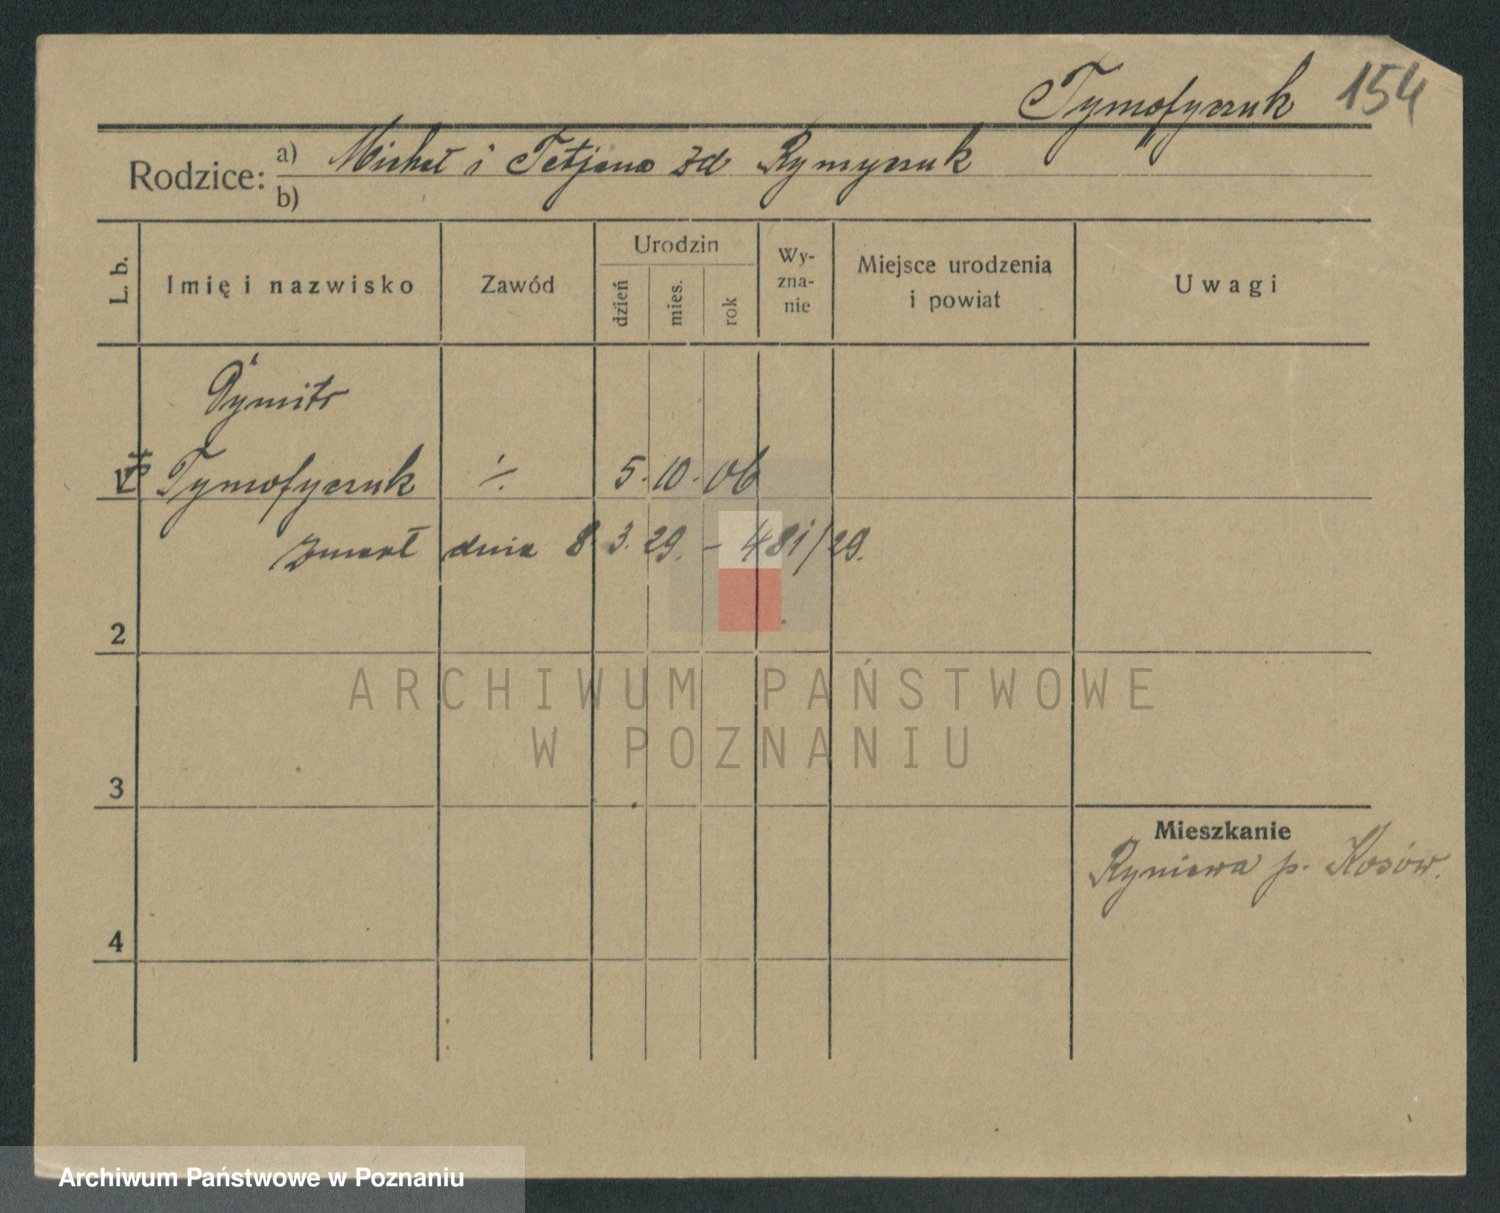 Tymofyczuk 154
Rodzice: a) Michał i Tetjana zd Rymyczuk
b)
L. b.
Imię i nazwisko
Zawód
Urodzin
dzień
mies.
rok
Wy-
zna-
nie
Miejsce urodzenia
i powiat
Uwagi
Dymitr
Tymofyczuk ./. 5. 10. 06
zmarł dnia 8. 3. 29. – 481/29.
2
3
4
Mieszkanie
Ryniawa p. Kosów.
ARCHIWUM PAŃSTWOWE
W POZNANIU
Archiwum Państwowe w Poznaniu